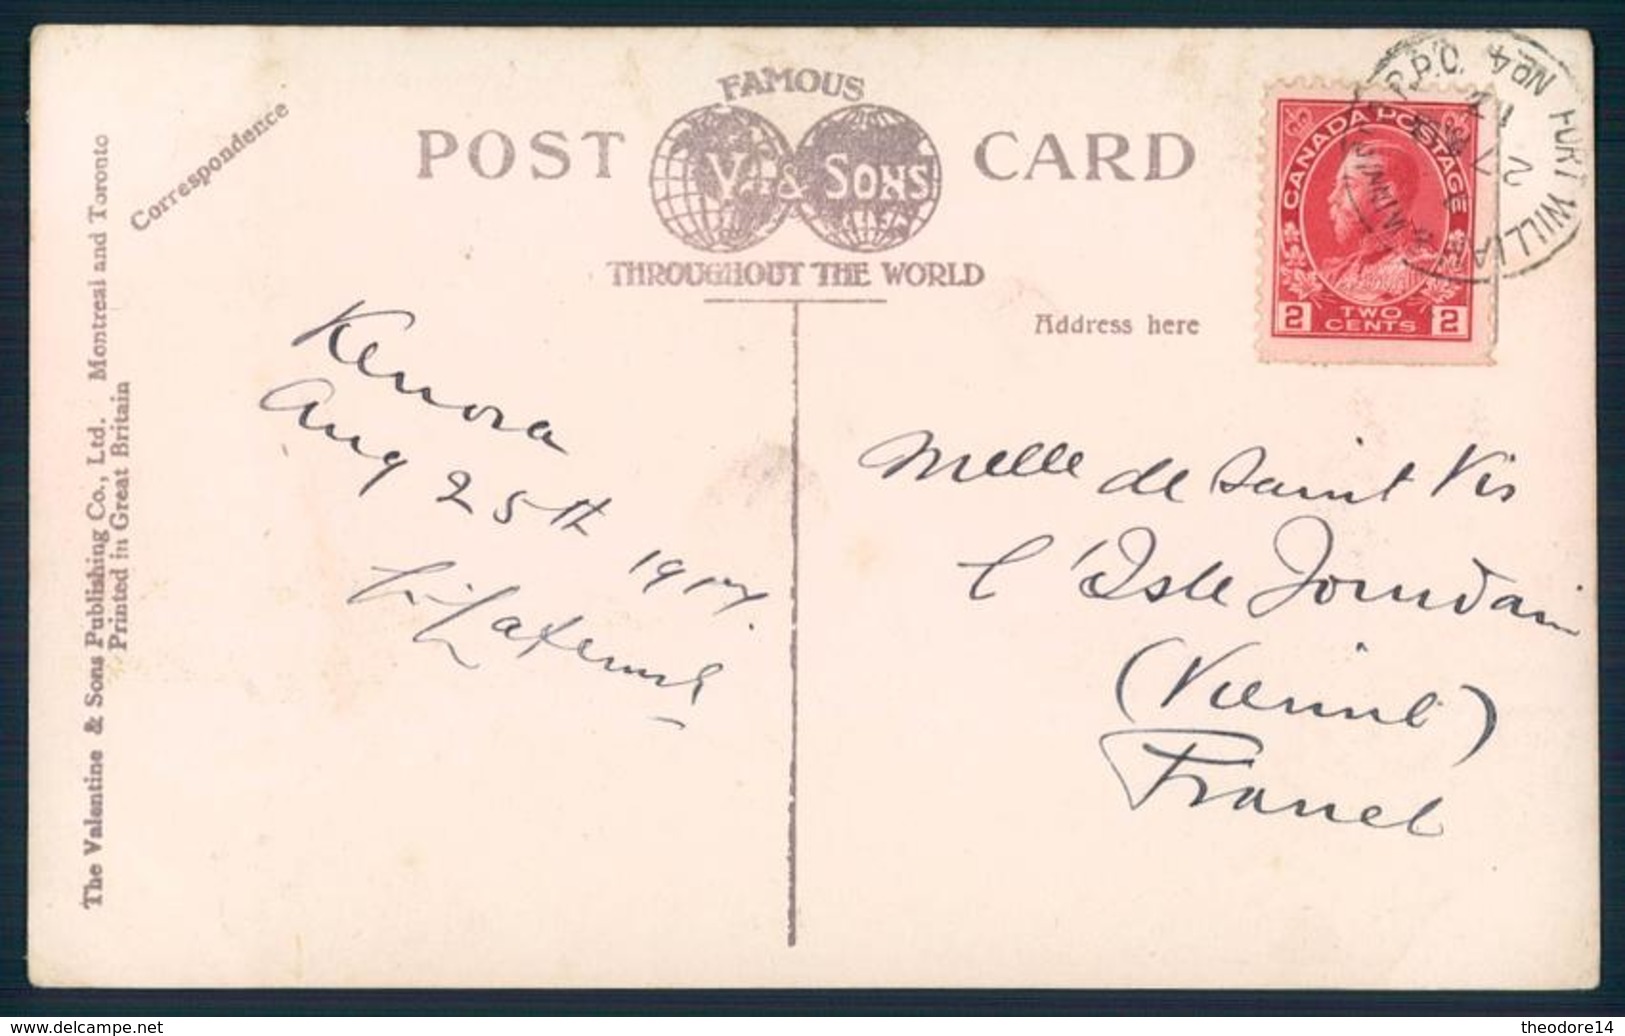 FAMOUS
POST CARD
V. & SONS
THROUGHOUT THE WORLD
Correspondence
Address here
The Valentine & Sons Publishing Co., Ltd. Montreal and Toronto
Printed in Great Britain
CANADA POSTAGE
2 TWO CENTS 2
FORT WILLIAM & WINN
R.P.O. No 4
27
Kenora
Aug 25th
Melle de Saint Vis
l'Isle Jourdain
(Vienne)
France
https://www.delcampe.net
theodore14